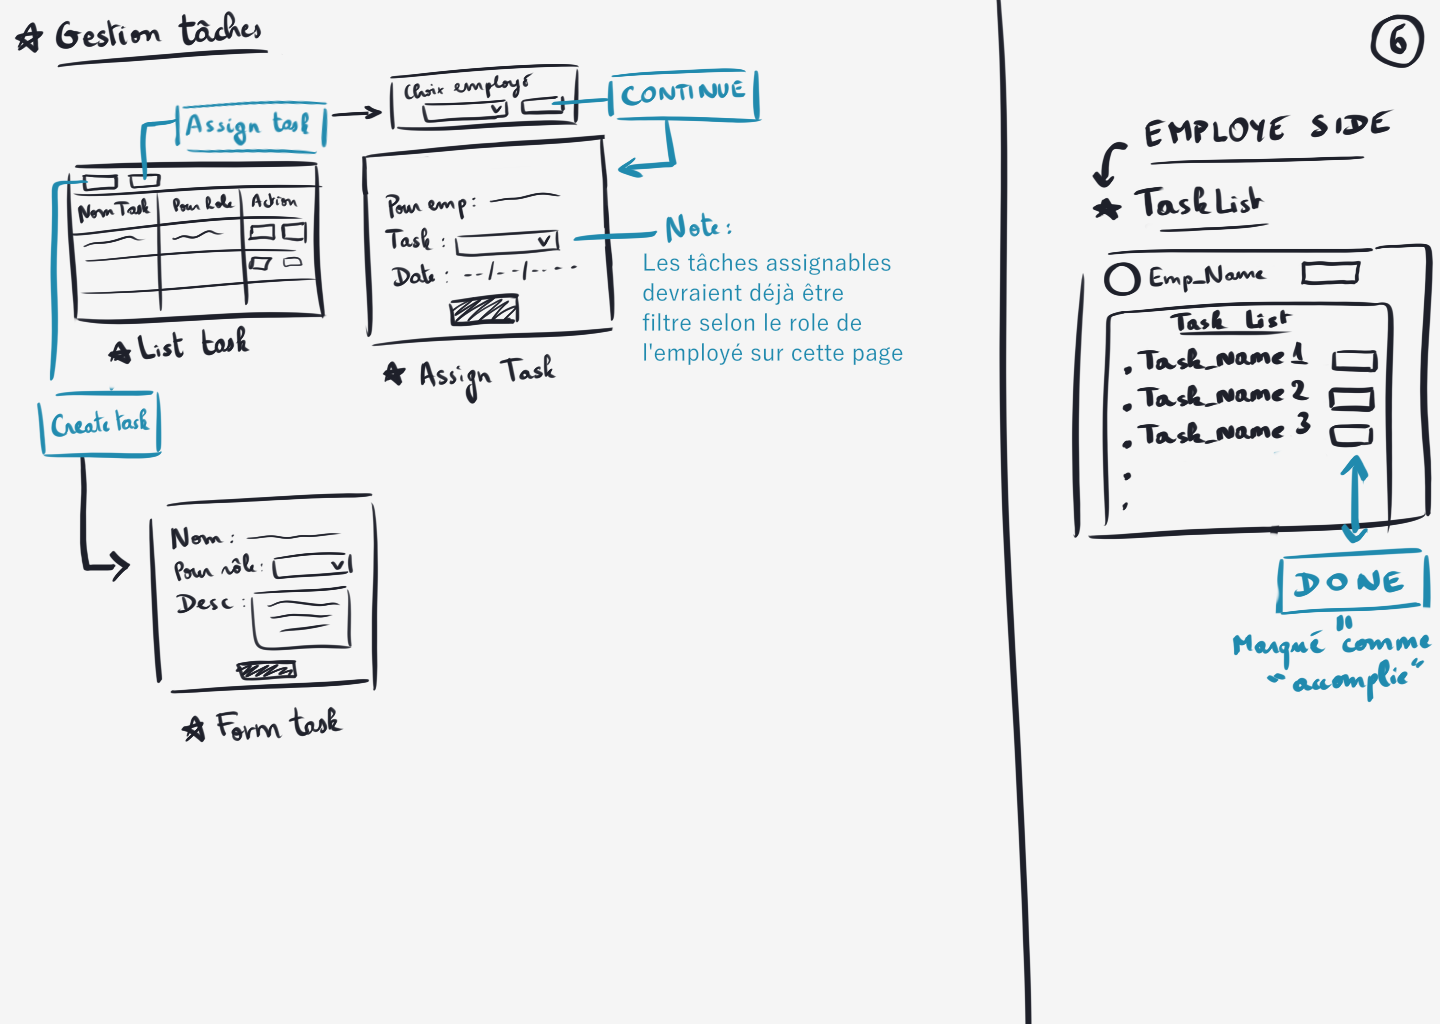 Gestion tâches
6
Choix employé
CONTINUE
Assign task
Nom Task Pour Role Action
List task
Pour emp :
Task :
Date : --/--/----
Assign Task
Note :
Les tâches assignables
devraient déjà être
filtre selon le role de
l'employé sur cette page
Create task
Nom :
Pour rôle :
Desc :
Form task
EMPLOYE SIDE
Task List
Emp_Name
Task List
. Task_Name 1
. Task_Name 2
. Task_Name 3
.
.
DONE
"
Marqué comme
"accomplie"